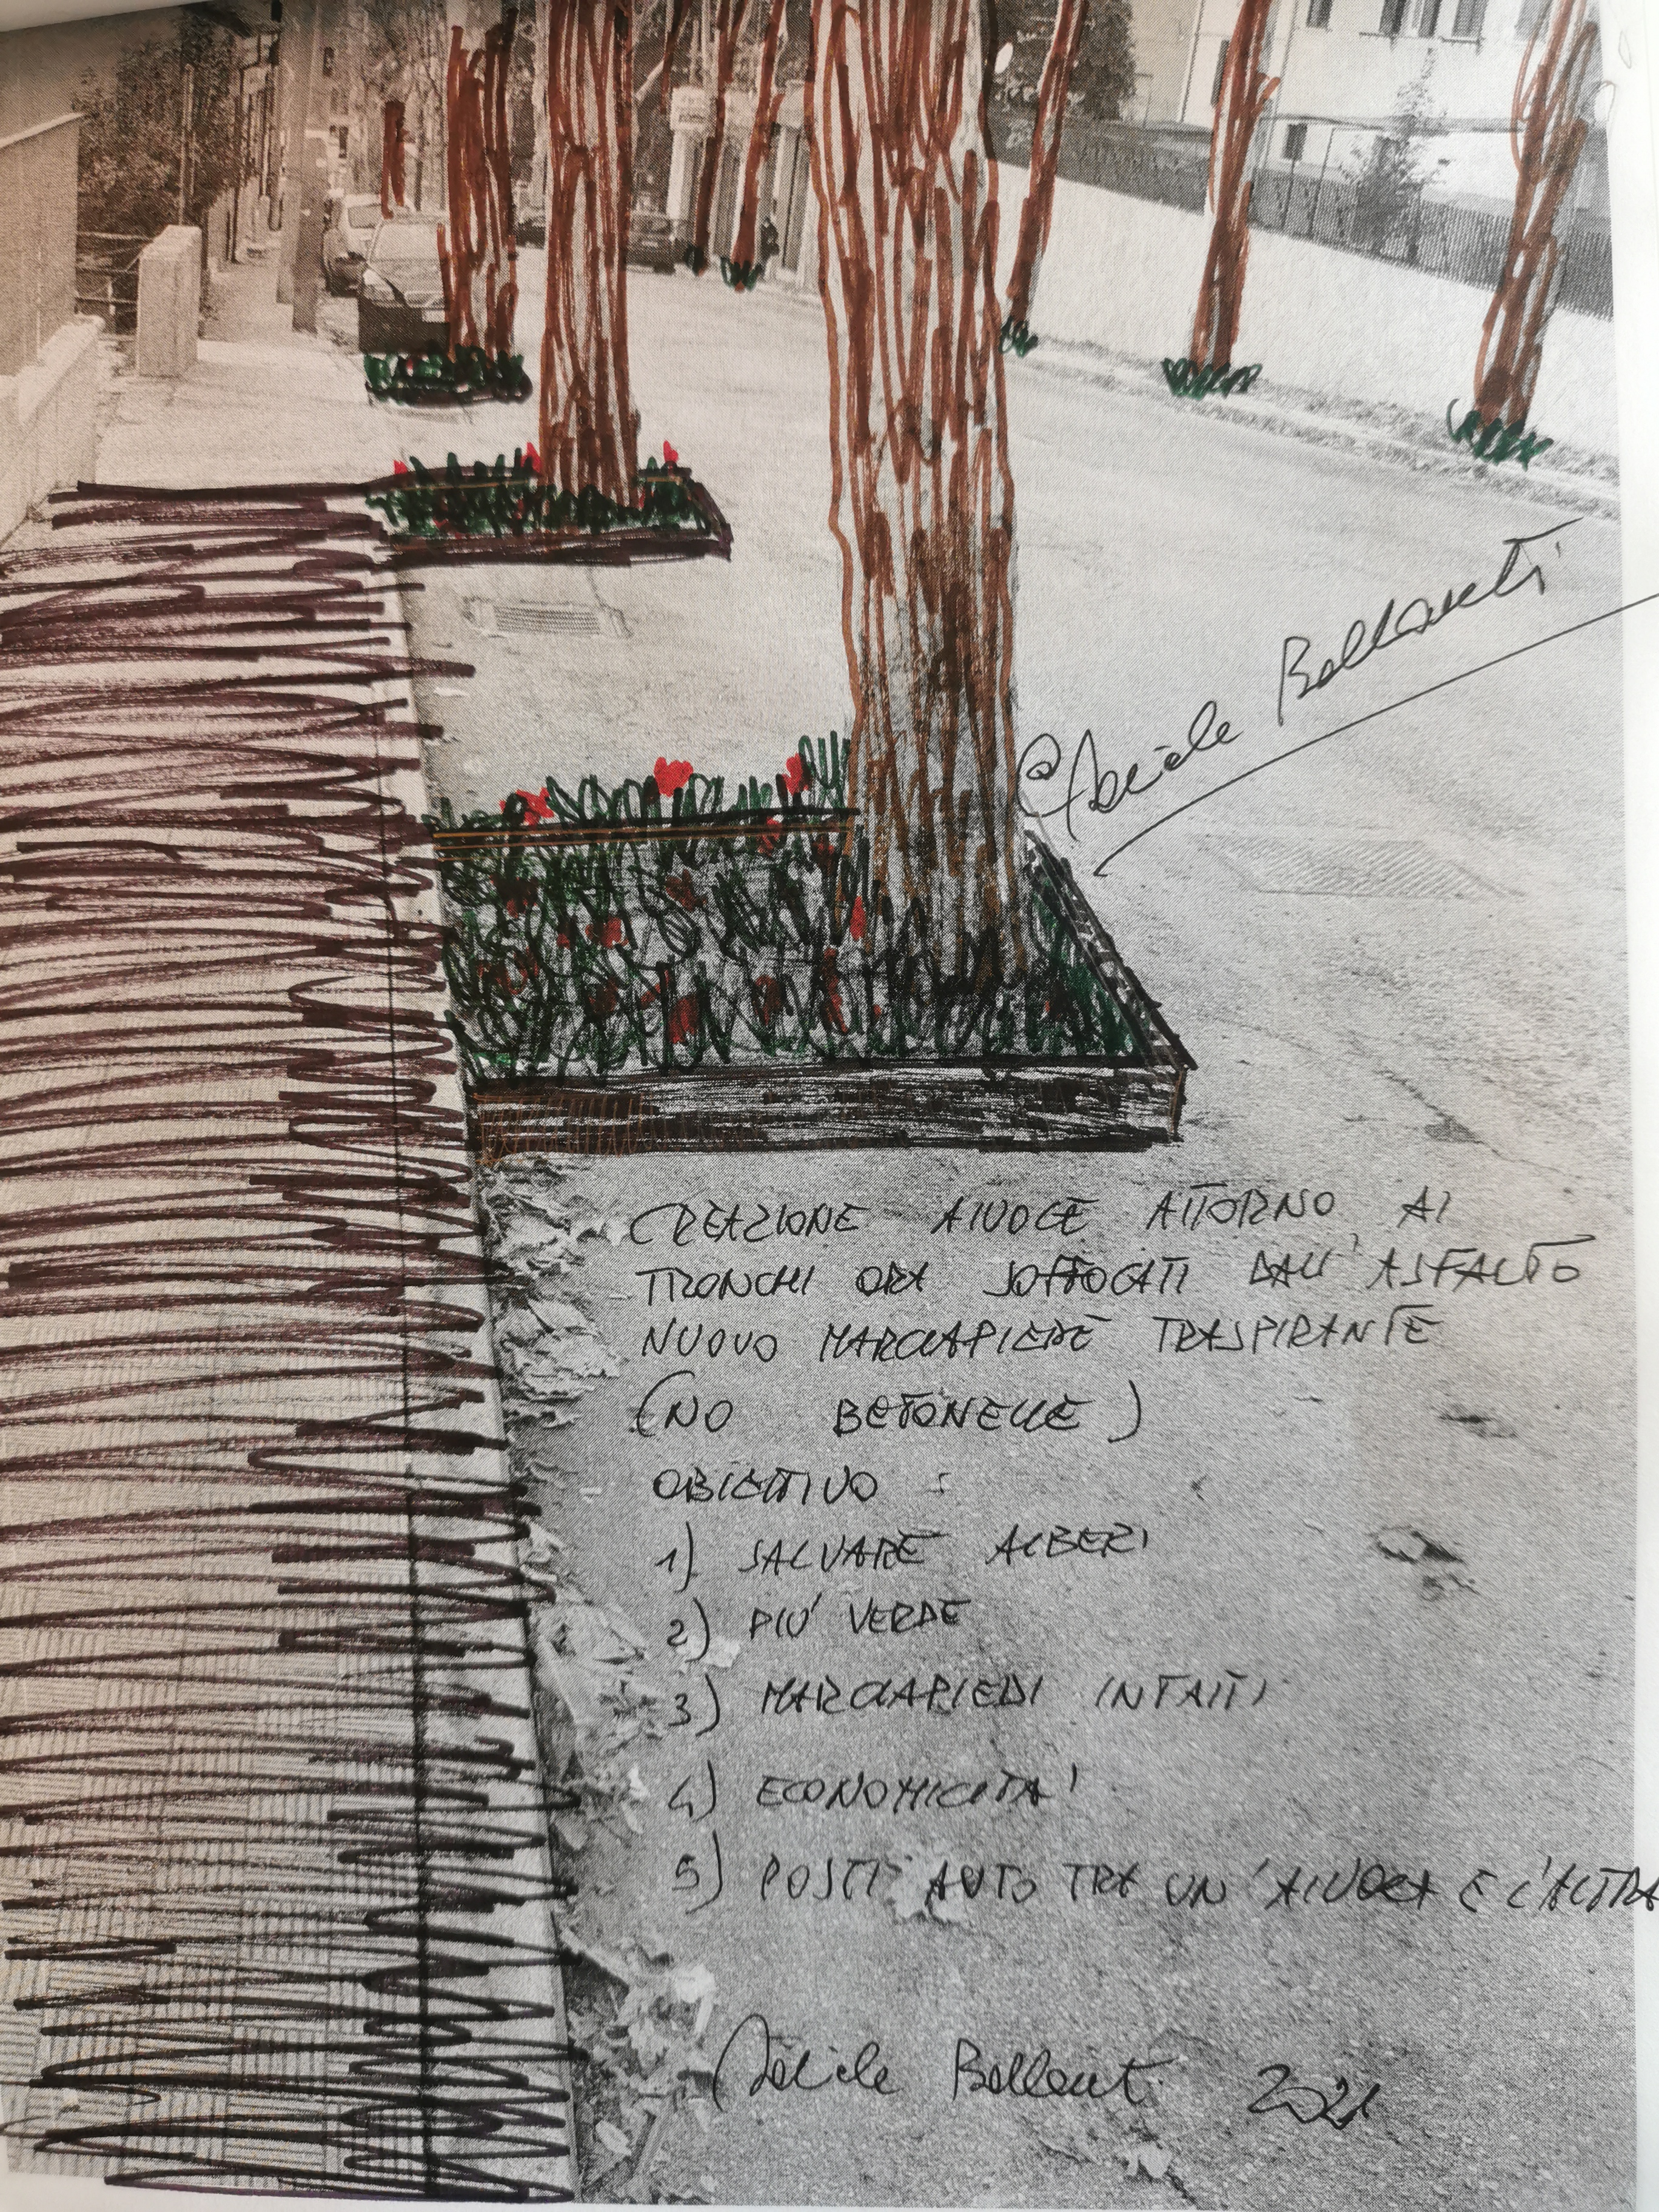 © Adele Bellanti
CREAZIONE AIUOLE ATTORNO AI
TRONCHI ORA SOFFOCATI DALL'ASFALTO
NUOVO MARCIAPIEDE TRASPIRANTE
(NO BETONELLE)
OBIETTIVO :
1) SALVARE ALBERI
2) PIU' VERDE
3) MARCIAPIEDI INTATTI
4) ECONOMICITA'
5) POSTI AUTO TRA UN'AIUOLA E L'ALTRA
2021